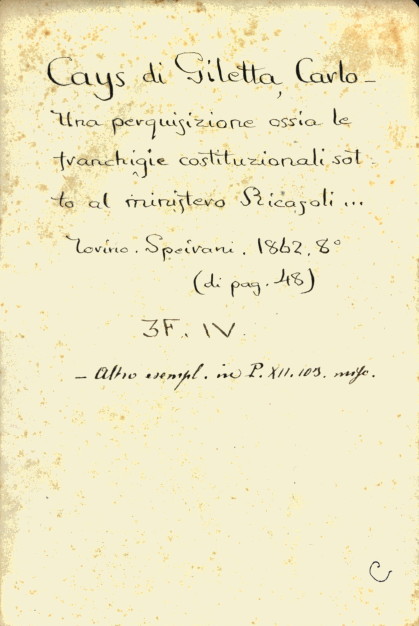 Cays di Giletta, Carlo -
Una perquisizione ossia le
franchigie costituzionali sot-
to al ministero Ricasoli ...
Torino. Speirani. 1862. 8°
(di pag. 48)
3F. IV.
- Altro esempl. in P. XII. 103. misc.
C